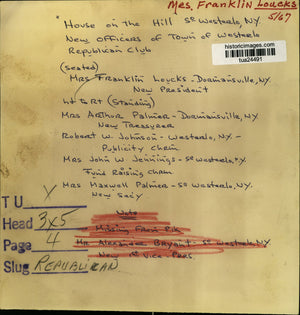 Mrs. Franklin Loucks
5/67
"House on the Hill So Westerlo, N.Y.
New Officers of Town of Westerlo
Republican Club
historicimages.com
tua24491
(seated)
Mrs Franklin Loucks - Dormansville, NY
New President
Lt & Rt (Standing)
Mrs Arthur Palmer - Dormansville, NY
New Treasurer
Robert W. Johnson - Westerlo, N.Y. -
Publicity Chrm
Mrs John W. Jennings - So Westerlo, N.Y
Fund Raising Chrm
Mrs Maxwell Palmer - So Westerlo, N.Y.
New Sec'y
Note
Missing From Pix
Mr. Alexander Bryant - So Westerlo, NY
New 1st Vice-Pres.
T U
Head 3x5
Page 4
Slug REPUBLICAN